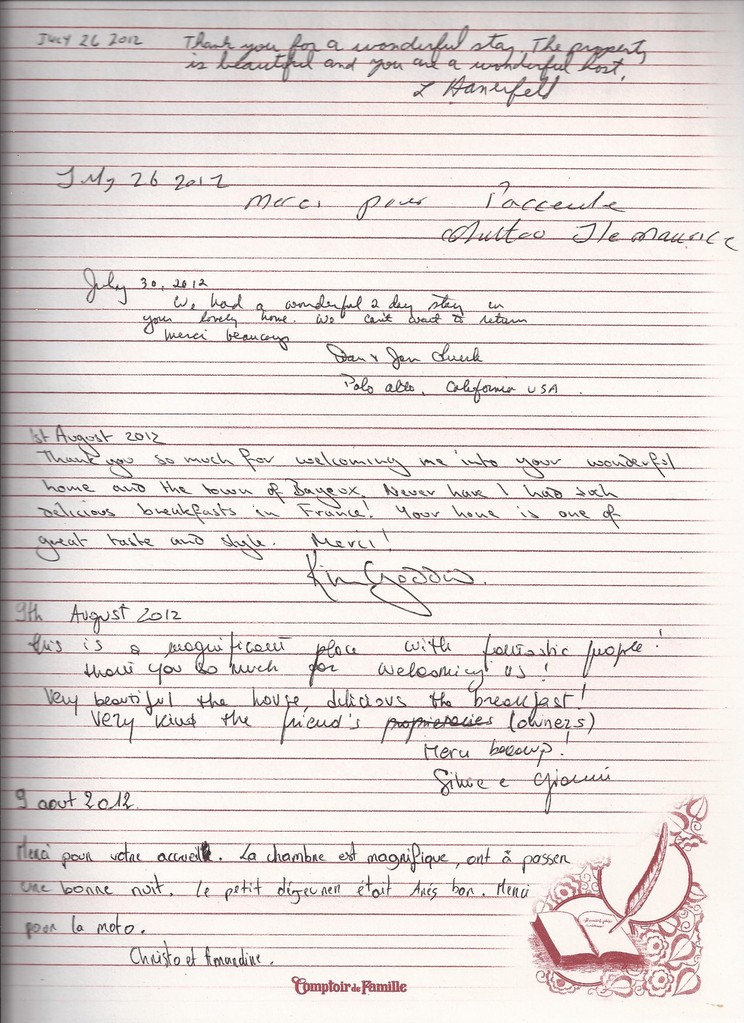 JULY 26 2012 Thank you for a wonderful stay. The property
is beautiful and you are a wonderful host.
L
July 26 2012
Merci pour l'acceuile
Ile Maurice
July 30, 2012
We had a wonderful 2 day stay in
your lovely home. We can't wait to return
merci beaucoup
Dan + Jen
Palo alto, California USA
1st August 2012
Thank you so much for welcoming me into your wonderful
home and the town of Bayeux. Never have I had such
delicious breakfasts in France! Your home is one of
great taste and style. Merci!
Kim
9th August 2012
this is a magnificent place with fantastic people!
thank you so much for welcoming us!
Very beautiful the house, delicious the breakfast!
Very kind the friend's proprietaries (owners)
Merci beacoup!
Silvie e Gianni
9 aout 2012
Merci pour votre accueil. La chambre est magnifique, ont à passer
une bonne nuit. Le petit dejeuner était très bon. Merci
pour la moto.
Christo et Amandine.
Comptoir de Famille